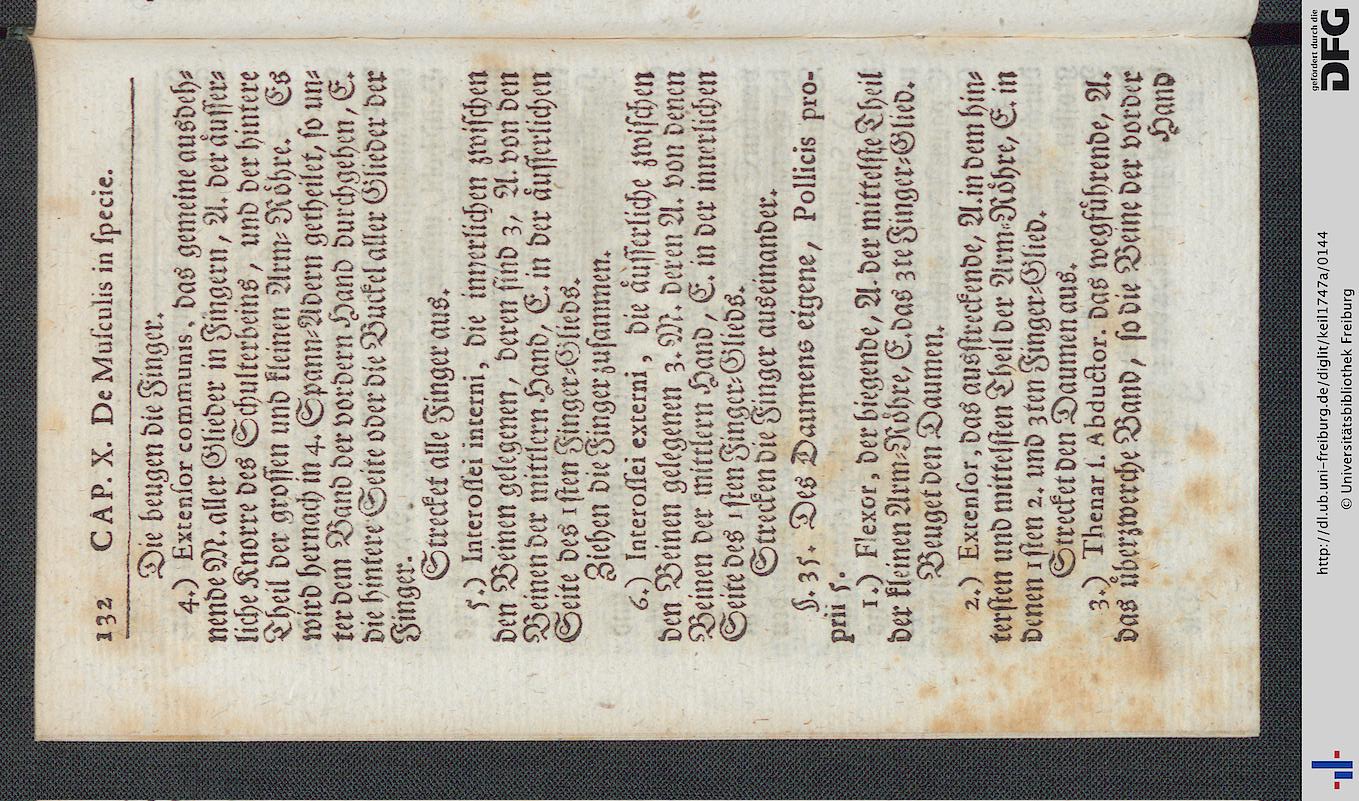 132 CAP. X. De Muſculis in ſpecie.
Die beugen die Finger.
4.) Extenſor communis, das gemeine ausdeh⸗
nende M. aller Glieder in Fingern, A. der aͤuſſer⸗
liche Knorre des Schulterbeins, und der hintere
Theil der groſſen und kleinen Arm⸗Roͤhre. Es
wird hernach in 4. Spann⸗Adern getheilet, ſo un⸗
ter dem Band der vordern Hand durchgehen, E.
die hintere Seite oder die Buckel aller Glieder der
Finger.
Strecket alle Finger aus.
5.) Interoſſei interni, die innerlichen zwiſchen
den Beinen gelegenen, deren ſind 3, A. von den
Beinen der mittlern Hand, E. in der aͤuſſerlichen
Seite des 1ſten Finger⸗Glieds.
Ziehen die Finger zuſammen.
6.) Interoſſei externi, die aͤuſſerliche zwiſchen
den Beinen gelegenen 3. M. deren A. von denen
Beinen der mittlern Hand, E. in der innerlichen
Seite des 1ſten Finger⸗Glieds.
Strecken die Finger auseinander.
§. 35. Des Daumens eigene, Pollicis pro-
prii 5.
1.) Flexor, der biegende, A. der mittelſte Theil
der kleinen Arm⸗Roͤhre, E. das 3te Finger⸗Glied.
Beuget den Daumen.
2.) Extenſor, das ausſtreckende, A. in dem hin⸗
terſten und mittelſten Theil der Arm⸗Roͤhre, E. in
denen 1ſten 2. und 3ten Finger⸗Glied.
Strecket den Daumen aus.
3.) Thenar ſ. Abductor. das wegfuͤhrende, A.
das uͤberzwerche Band, ſo die Beine der vorder
Hand
gefördert durch die
DFG
http://dl.ub.uni-freiburg.de/diglit/keil1747a/0144
© Universitätsbibliothek Freiburg